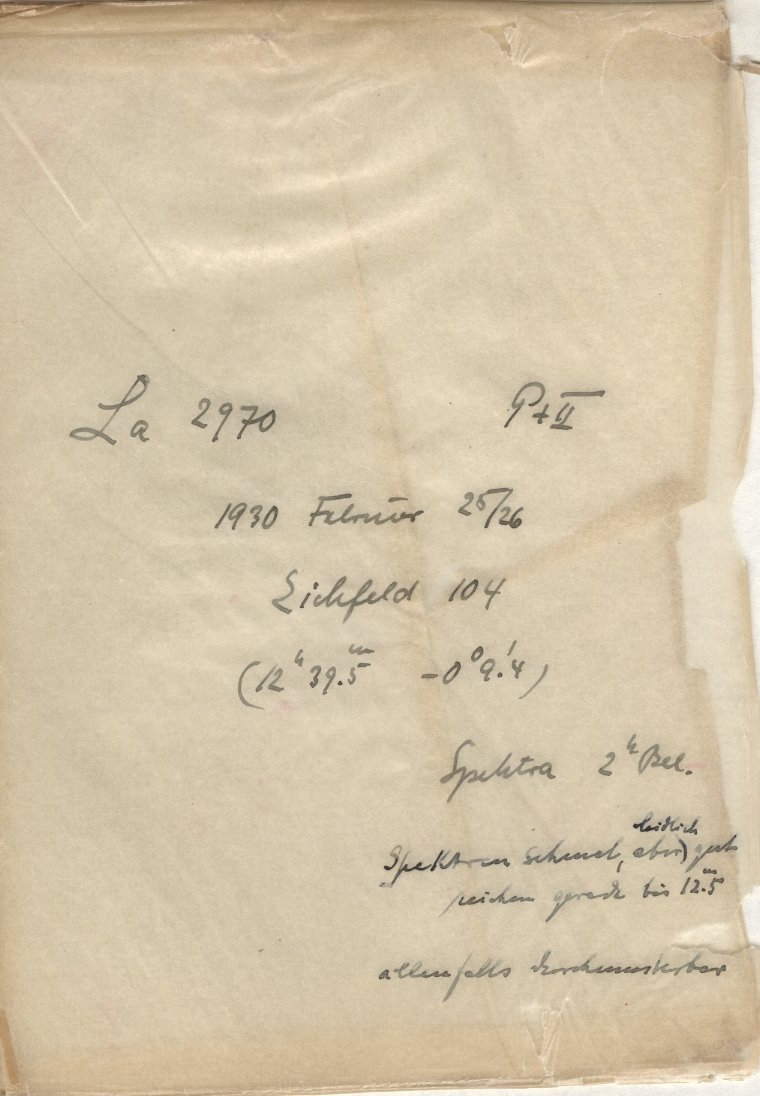 La 2970 P+II
1930 Februar 25/26
Eichfeld 104
(12ʰ 39.ᵐ5 -0° 9.'4)
Spektra 2ʰ Bel.
leidlich
Spektren schmal, aber) gut
reichen gerade bis 12.ᵐ5
allenfalls durchmusterbar